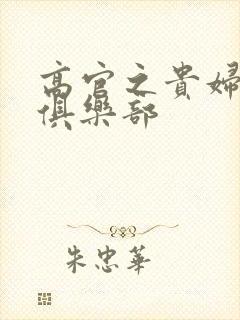 高官之貴婦
俱樂部
朱忠華